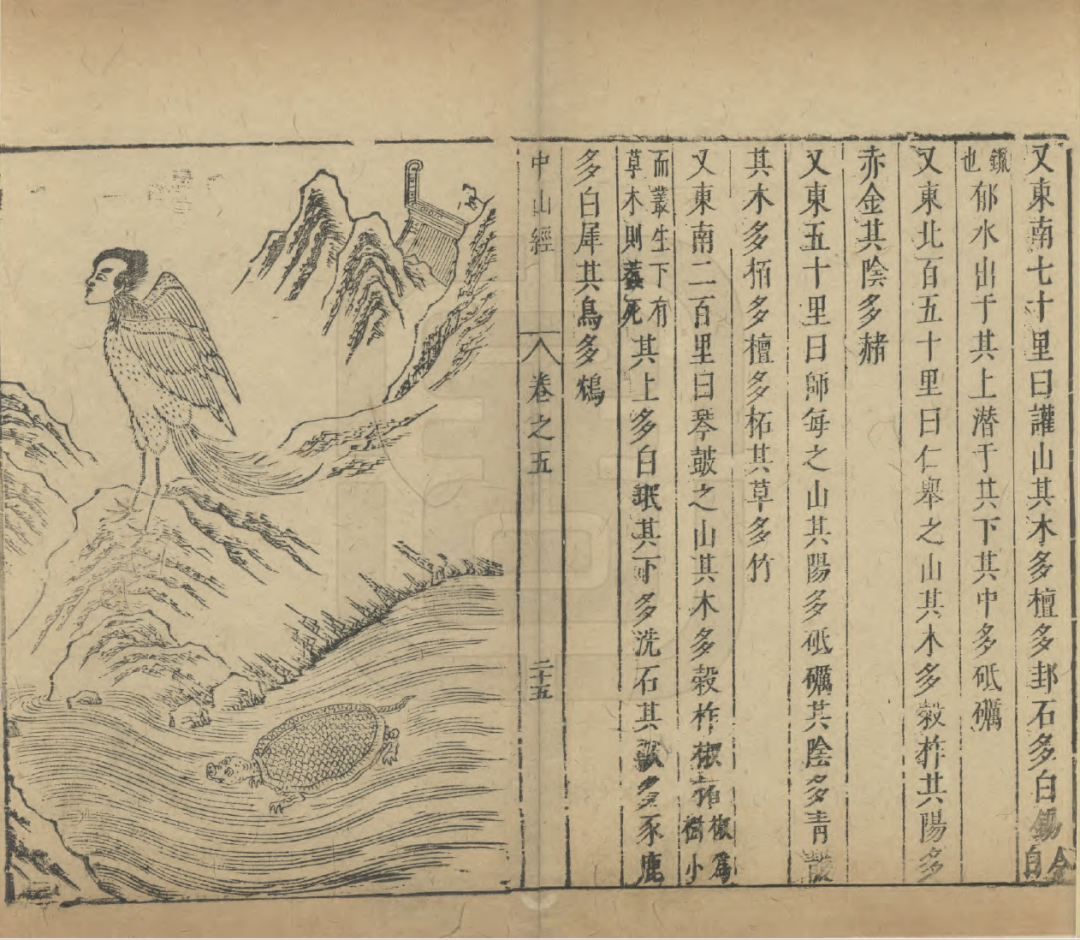 又東南七十里曰讙山其木多檀多邽石多白錫今白
鑞也郁水出于其上潜于其下其中多砥礪
又東北百五十里曰仁舉之山其木多榖柞其陽多
赤金其陰多赭
又東五十里曰師每之山其陽多砥礪其陰多青雘
其木多栢多檀多柘其草多竹
又東南二百里曰琴鼔之山其木多榖柞椒柘椒爲樹小
而叢生下有草木則蠚死其上多白珉其下多洗石其獸多豕鹿
多白犀其鳥多鴆
中山經 卷之五 二十五